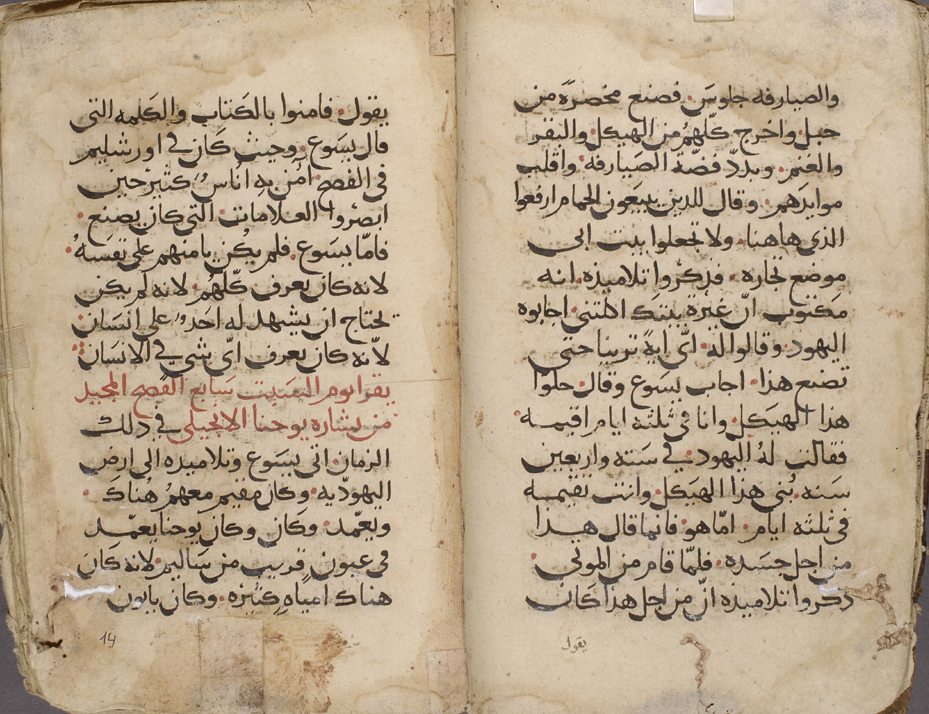 والصيارفه جلوسَ فصنع مخصرَة من
حبل واخرج كلّهمُ من الهيكل والبقر
والغنم وبددّ فضّة الصيارفة واقلب
موايدَهم وقال للذين يبيَعون الحمام ارفعوا
الذي هاهنا ولا تجعلوا بيت ابى
موضع تجاره فدكروا تلاميذه انه
مكتوب انّ غيرة بيتك اكلتنى اجابوه
اليهود وقالوا له ايّ اية ترينا حتى
تصنع هذا اجاب يسَوع وقال حلوا
هذا الهيكل وانا فى ثلثة ايام اقيمه
فقالت لهُ اليهود في ستة واربعين
سنه بُنى هذا الهيكل وانت تقيمه
فى ثلثه ايام امّا هو فانما قال هذا
من اجل جسَده فلمّا قام من الموتى
ذكروا تلاميده انّ من اجل هذا كان
يقول
يقول فامنوا بالكتاب والكلمه التى
قال يسَوع وحيث كان في اورشليم
في الفصح امَن به اناسٌ كثير حين
ابصَروا العلامات التى كان يصنع
فامّا يسَوع فلم يكُن يامنهم على نفسَهُ
لانه كان يعرف كلّهُم لانه لم يكن
يحتاج ان يشهد له احَدٌ على انسَان
لانّه كان يعرف ايّ شي في الانسَان
يقرا يوم السَبت سَابع الفصح المجيد
من بشاره يوحنا الانجيلى في ذلك
الزمان اتى يسَوع وتلاميده الى ارض
اليهوديه وكان مقيم معهمُ هُناك
ويعمّد وكان وكان يوحنا يعمّد
في عيون قريب من سَاليم لانه كان
هناك امياه كثيره وكان ياتون
14